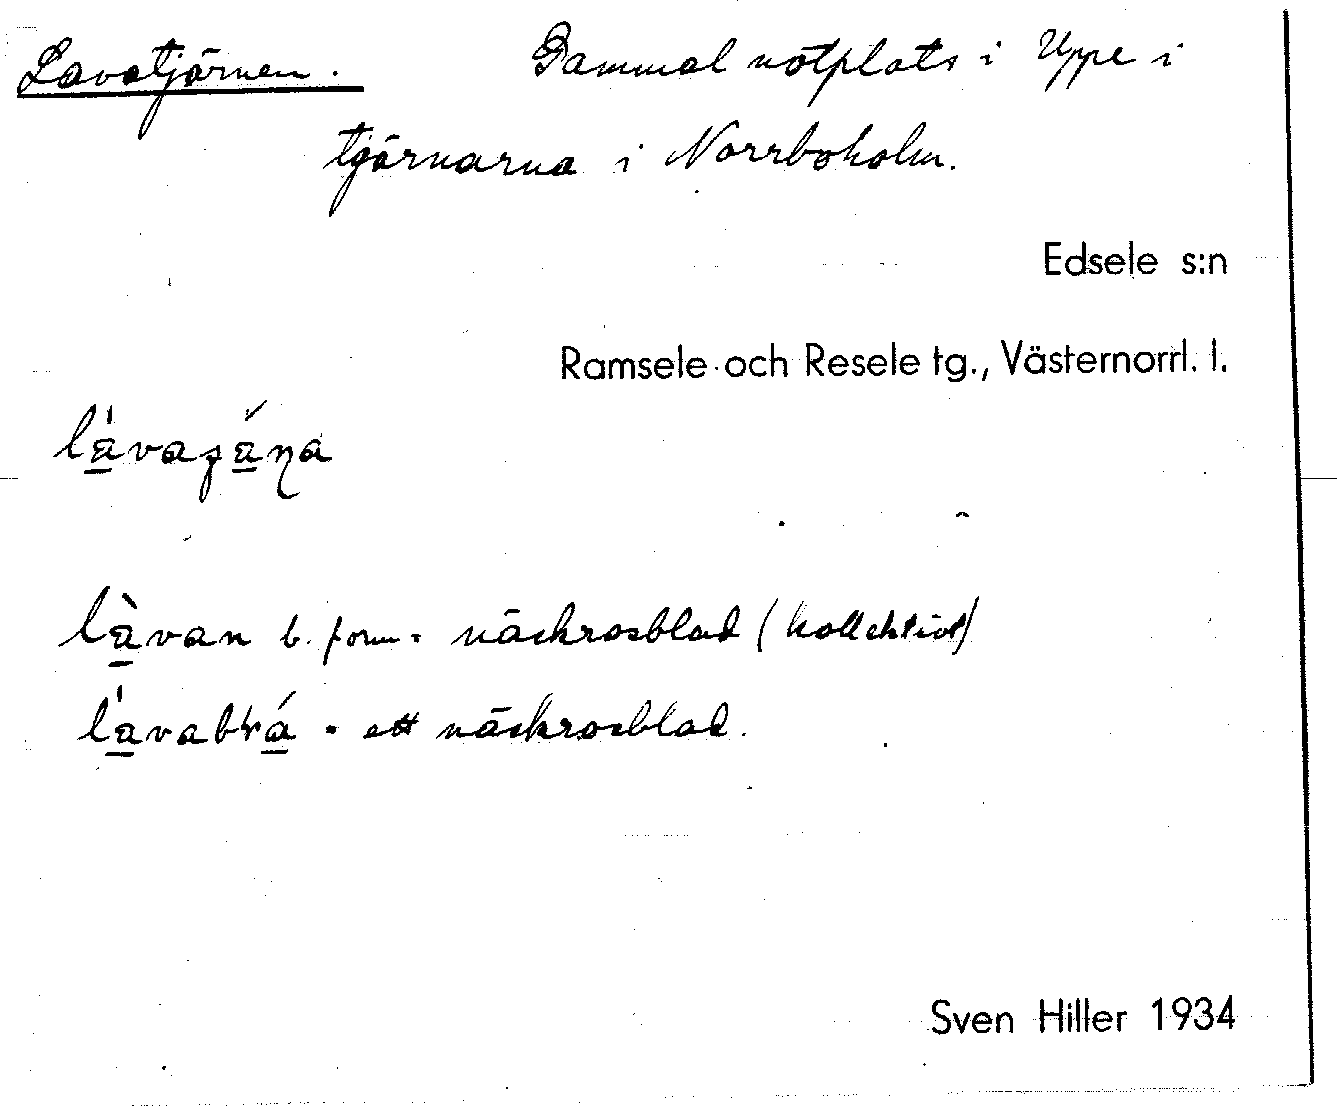 Lavatjärnen. Gammal notplats i Uppe i
tjärnarna i Norrboholm.
Edsele s:n
Ramsele och Resele tg., Västernorrl. l.
làvan b. form = näckrosblad (kollektivt)
= ett näckrosblad.
Sven Hiller 1934